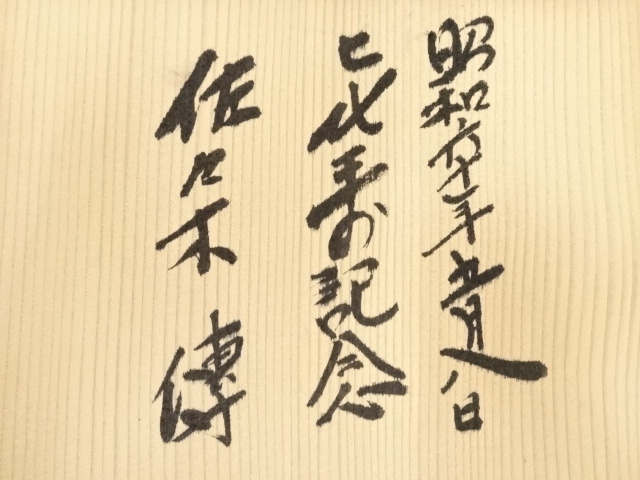 昭和六十一年五月八日
七代寿記念
佐々木 傳